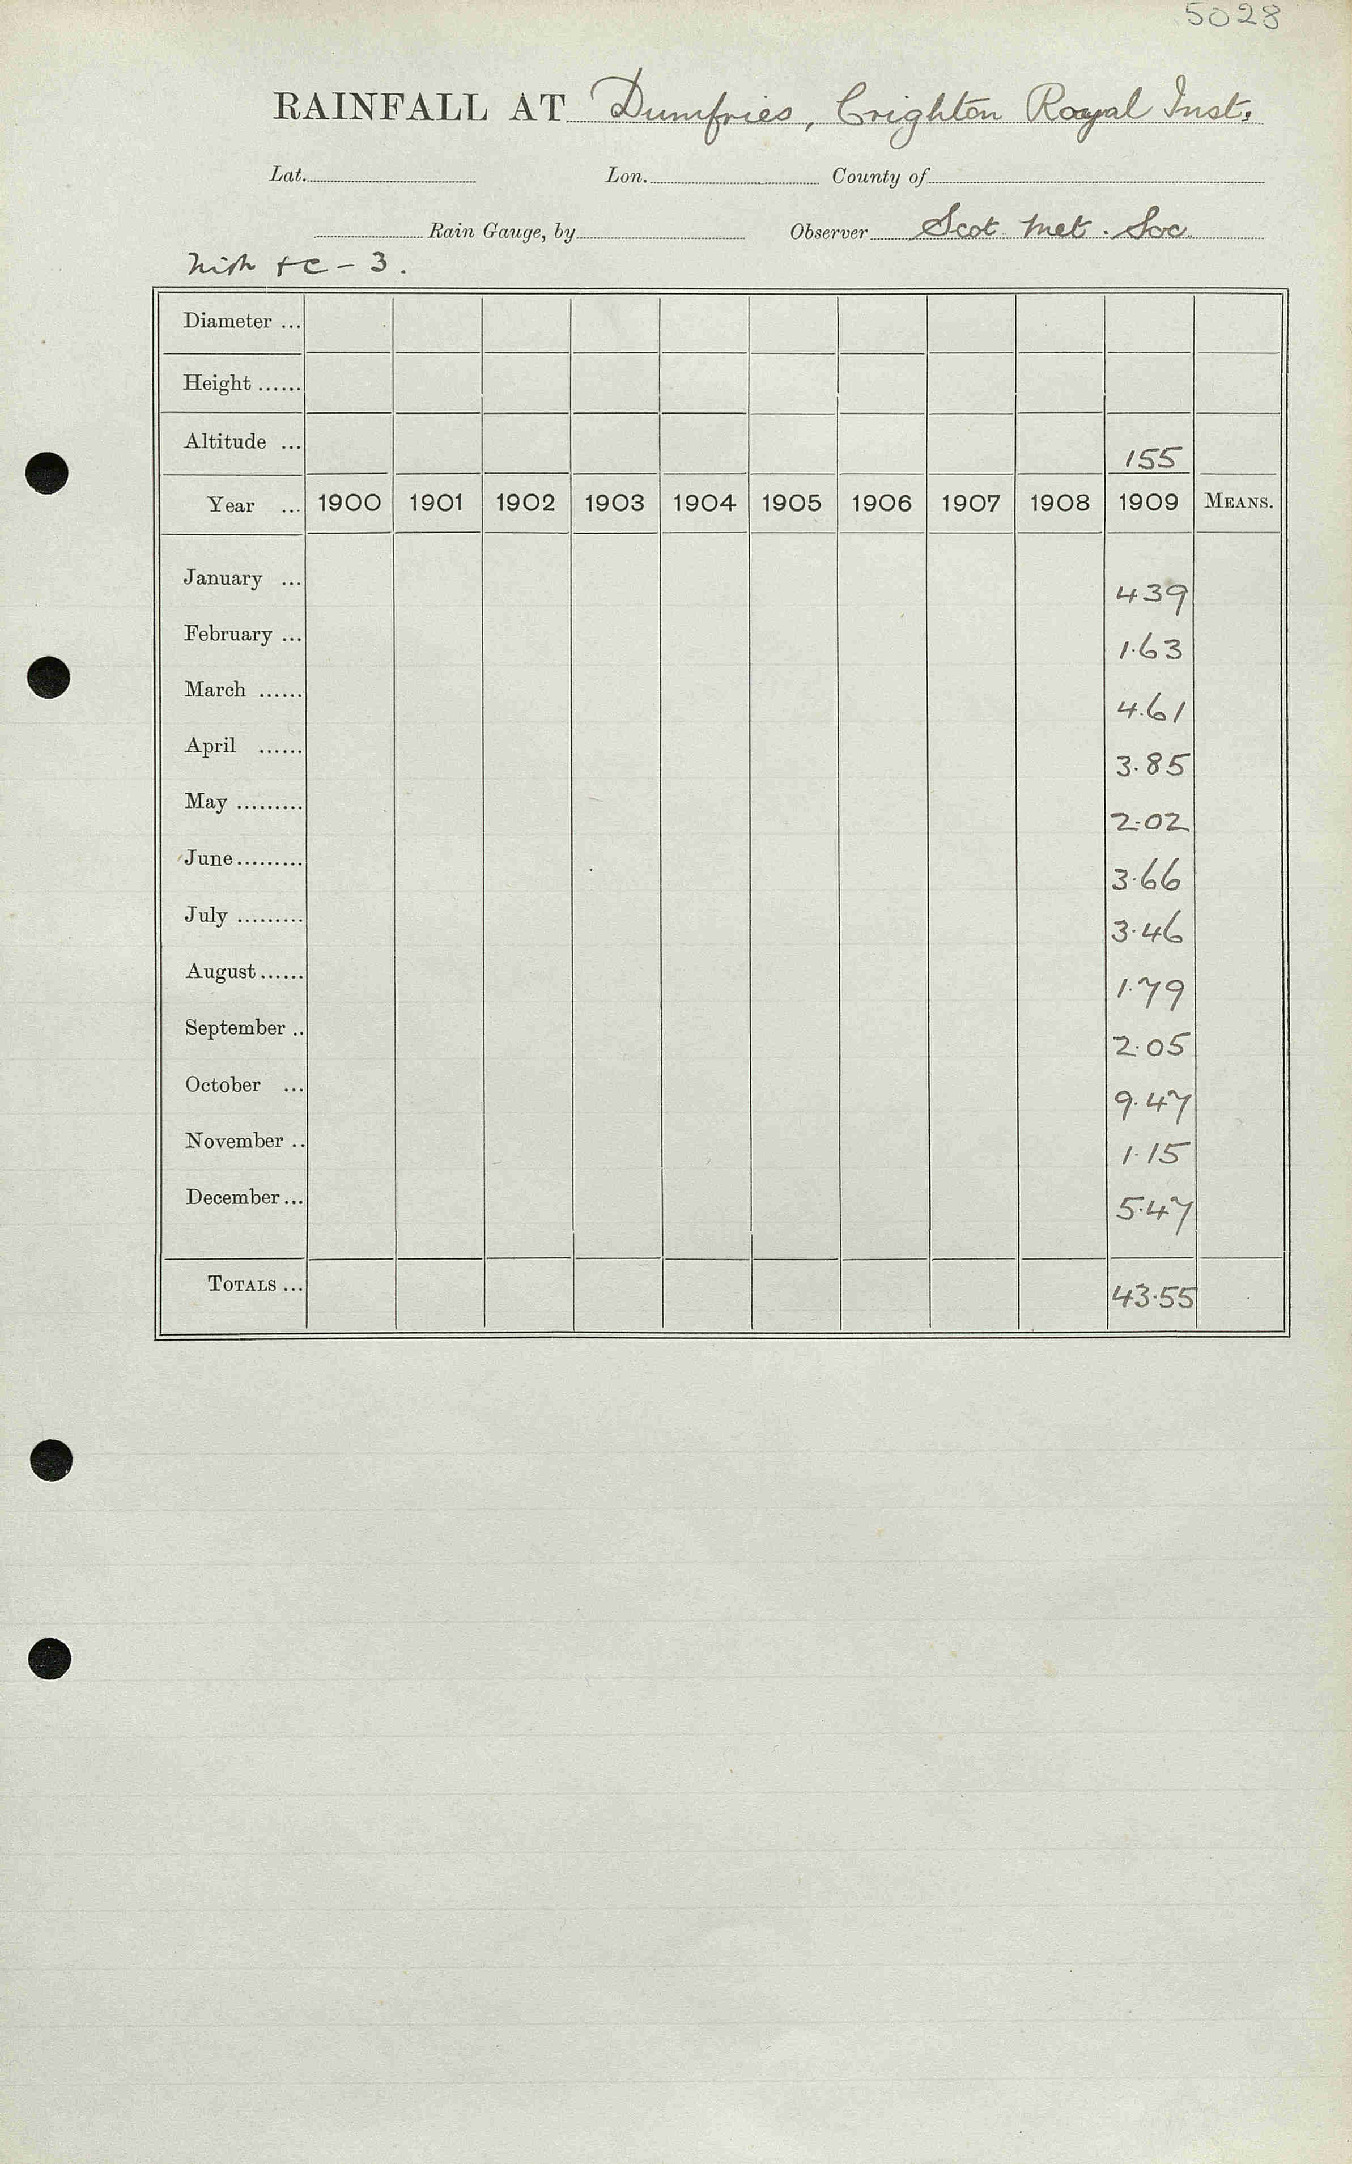 5028
RAINFALL AT Dumfries, Crighton Royal Inst.
Lat. Lon. County of
Rain Gauge, by Observer Scot. Met. Soc.
- 3.
Diameter ...
Height ......
Altitude ... 155
Year ... 1900 1901 1902 1903 1904 1905 1906 1907 1908 1909 MEANS.
January ... 439
February ... 1.63
March ...... 4.61
April ...... 3.85
May ......... 2.02
June ......... 3.66
July ......... 3.46
August ...... 1.79
September .. 2.05
October ... 9.47
November .. 1.15
December ... 5.47
TOTALS ... 43.55